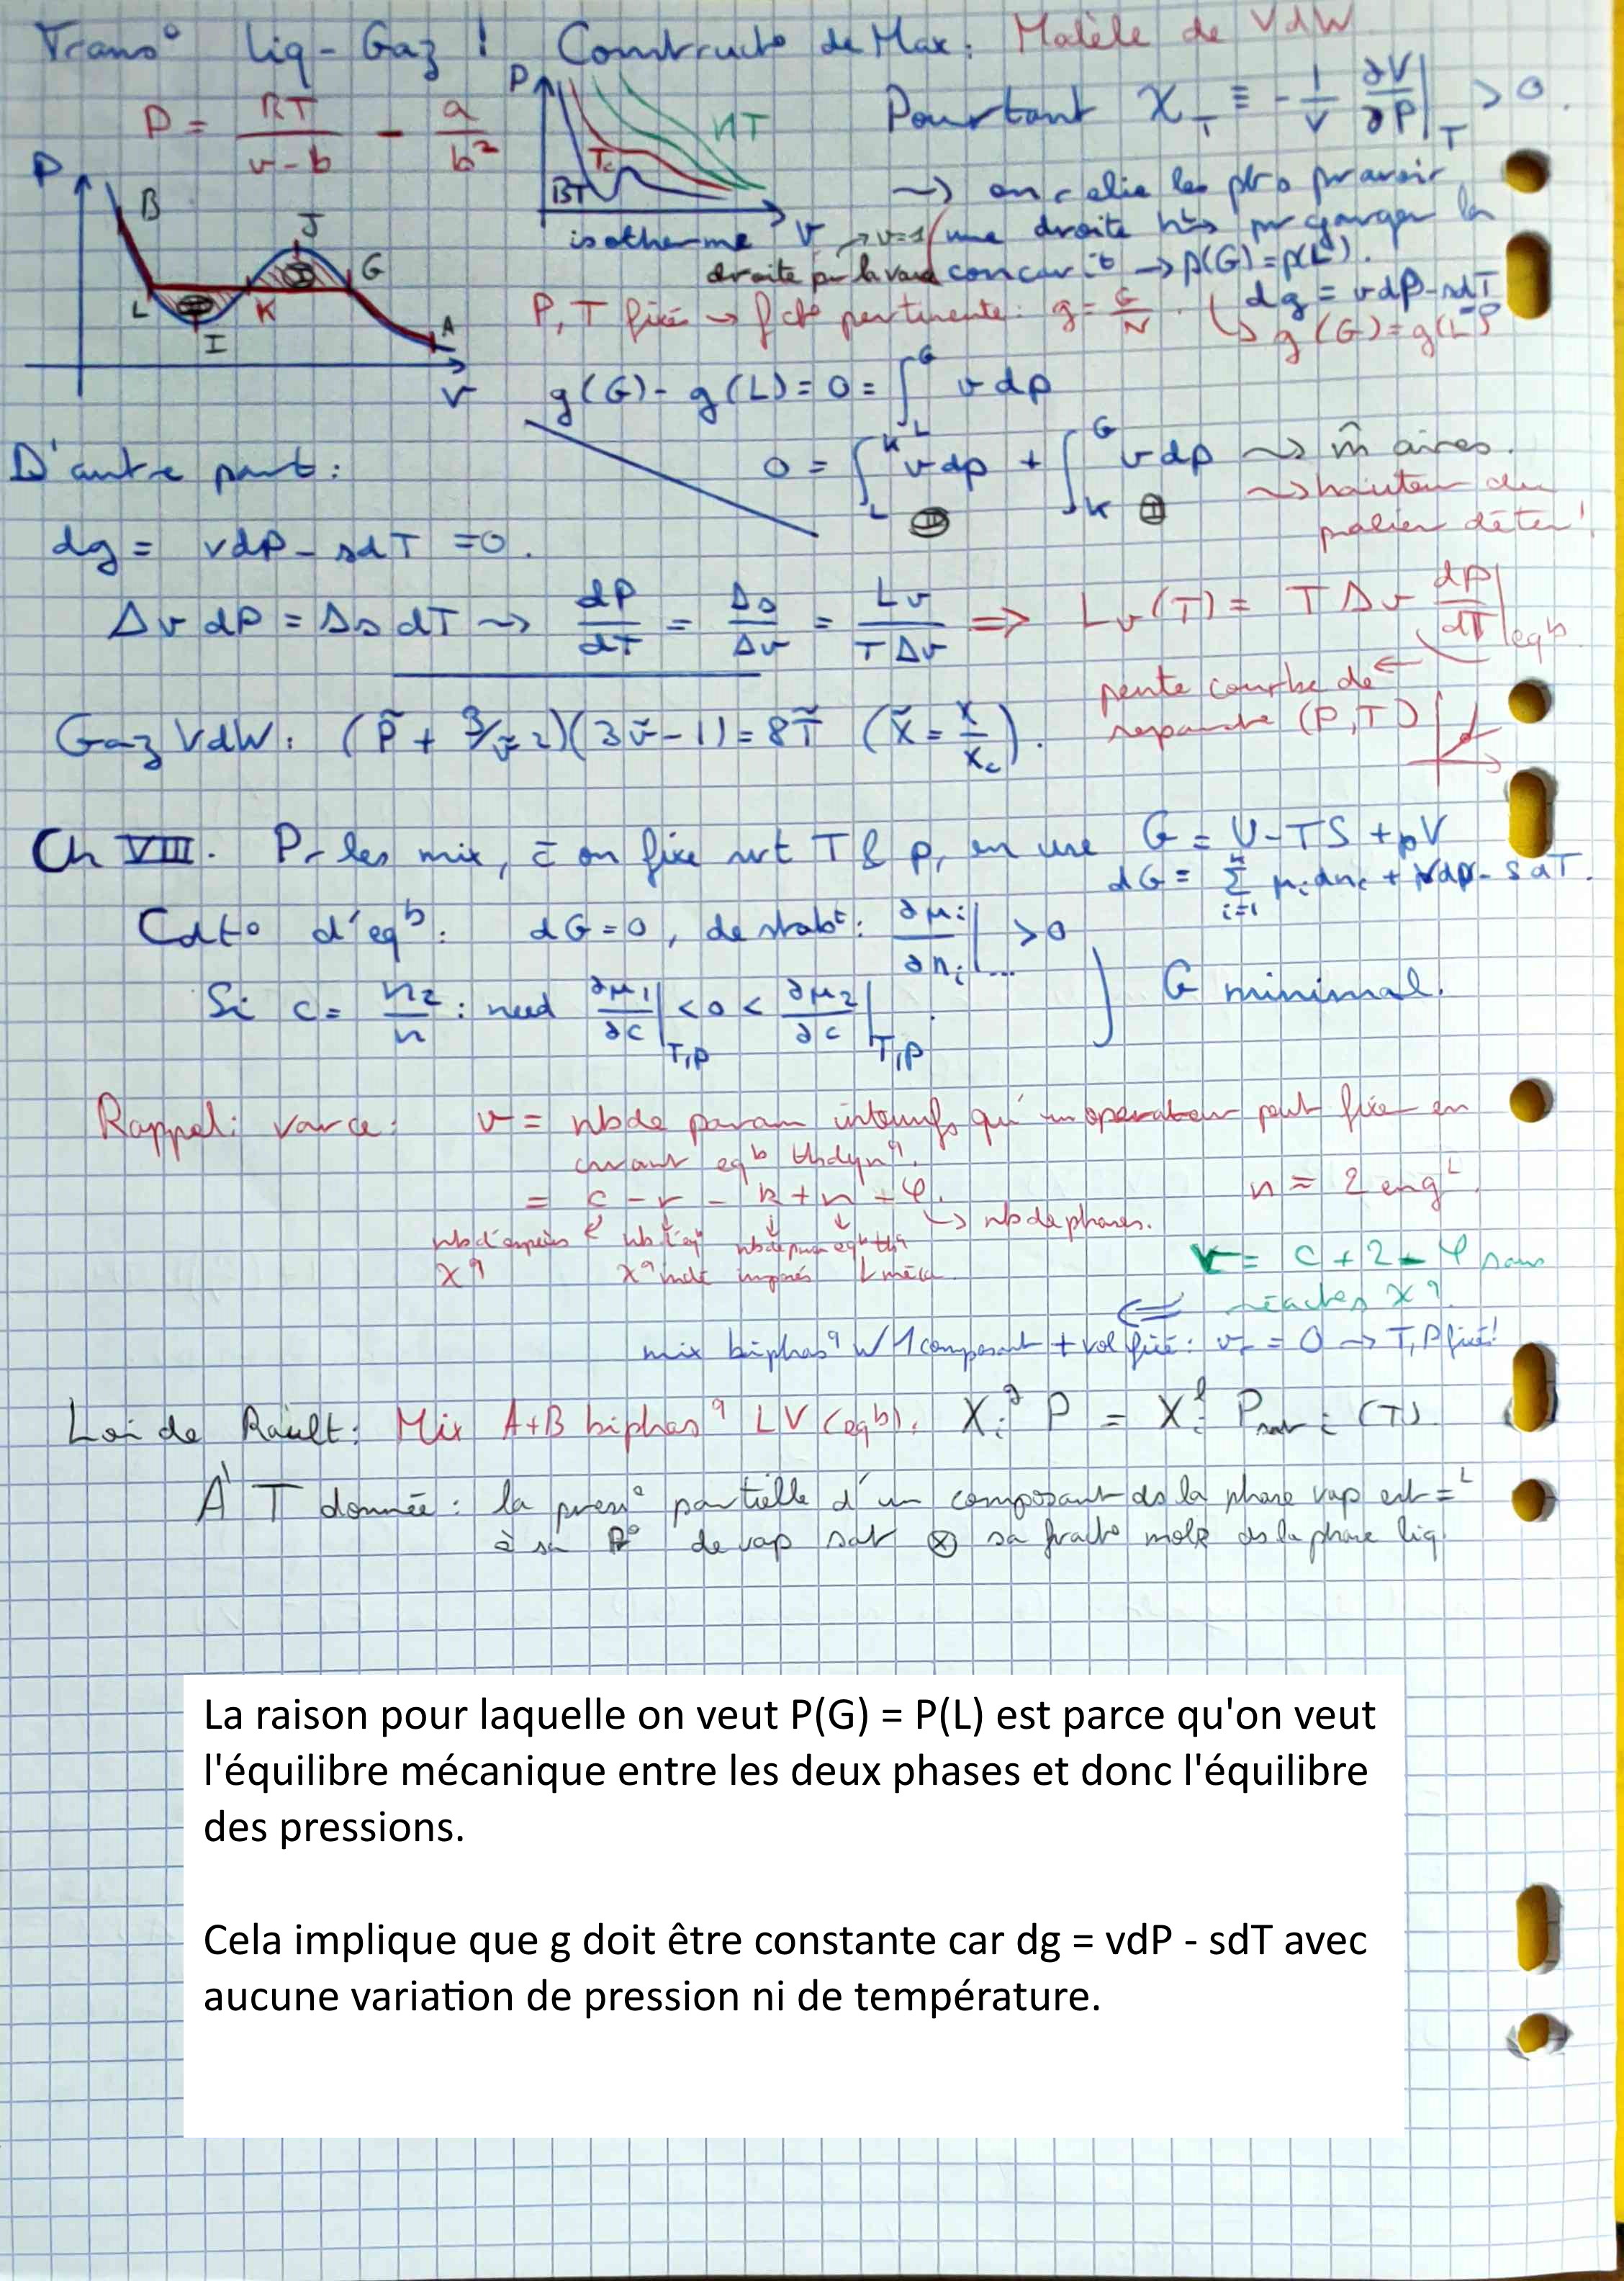 Trans° Liq-Gaz ! Constructo de Max : Modèle de VdW
P = RT/(v-b) - a/b²
P
HT
Tc
BT
isotherme v
Pourtant χ_T ≡ -1/V ∂V/∂P|_T > 0.
~> on relie les pts pr avoir
→ v=1 / une droite hz pr garger la
droite pr la var concavité → p(G)=p(L).
P B J G L K I A v
P, T fixé → fct° pertinente : g = G/N . dg = vdp-sdT
↳ g(G)=g(L)
g(G) - g(L) = 0 = ∫_L^G v dp
0 = ∫_L^K v dp + ∫_K^G v dp ~> m̂ aires.
~> hauteur du
palier déter !
D'autre part :
dg = vdP - sdT = 0.
Δv dP = Δs dT ~> dP/dT = Δs/Δv = Lv/(TΔv) => Lv(T) = TΔv dp/dT|eqb
pente courbe de ←
(P,T)
Gaz VdW : (P̃ + 3/ṽ²)(3ṽ-1) = 8T̃ (x̃ = x/xc).
Ch VIII. Pr les mix, c̄ on fixe svt T & p, on use G = U-TS+pV
dG = Σ_{i=1}^{k} μi dni + Vdp - SdT.
Cdt° d'eqb : dG=0, de stabt : ∂μi/∂ni|... > 0
Si c = n2/n : need ∂μ1/∂c|T,p < 0 < ∂μ2/∂c|T,p . G minimal.
Rappel : varce : v = nb de param intensifs qu'un operateur peut fixer en
eqb thdynq.
= c - r - k + n - φ.
↳ nb de phases.
n = 2 en gL
nb d'espèces
χq
nb d'eq
χq indé
imposés
méca
v = c + 2 - φ sans
réaction χq.
<=
mix biphasq w/ 1 composant + vol fixé : v = 0 → T, P fixé!
Loi de Raült : Mix A+B biphasq LV (eqb). Xi^g P = Xi^l Psat i (T)
À T donnée : la press° partielle d'un composant ds la phase vap est =L
à sa P° de vap sat ⊗ sa fracto mole ds la phase liq
La raison pour laquelle on veut P(G) = P(L) est parce qu'on veut
l'équilibre mécanique entre les deux phases et donc l'équilibre
des pressions.
Cela implique que g doit être constante car dg = vdP - sdT avec
aucune variation de pression ni de température.